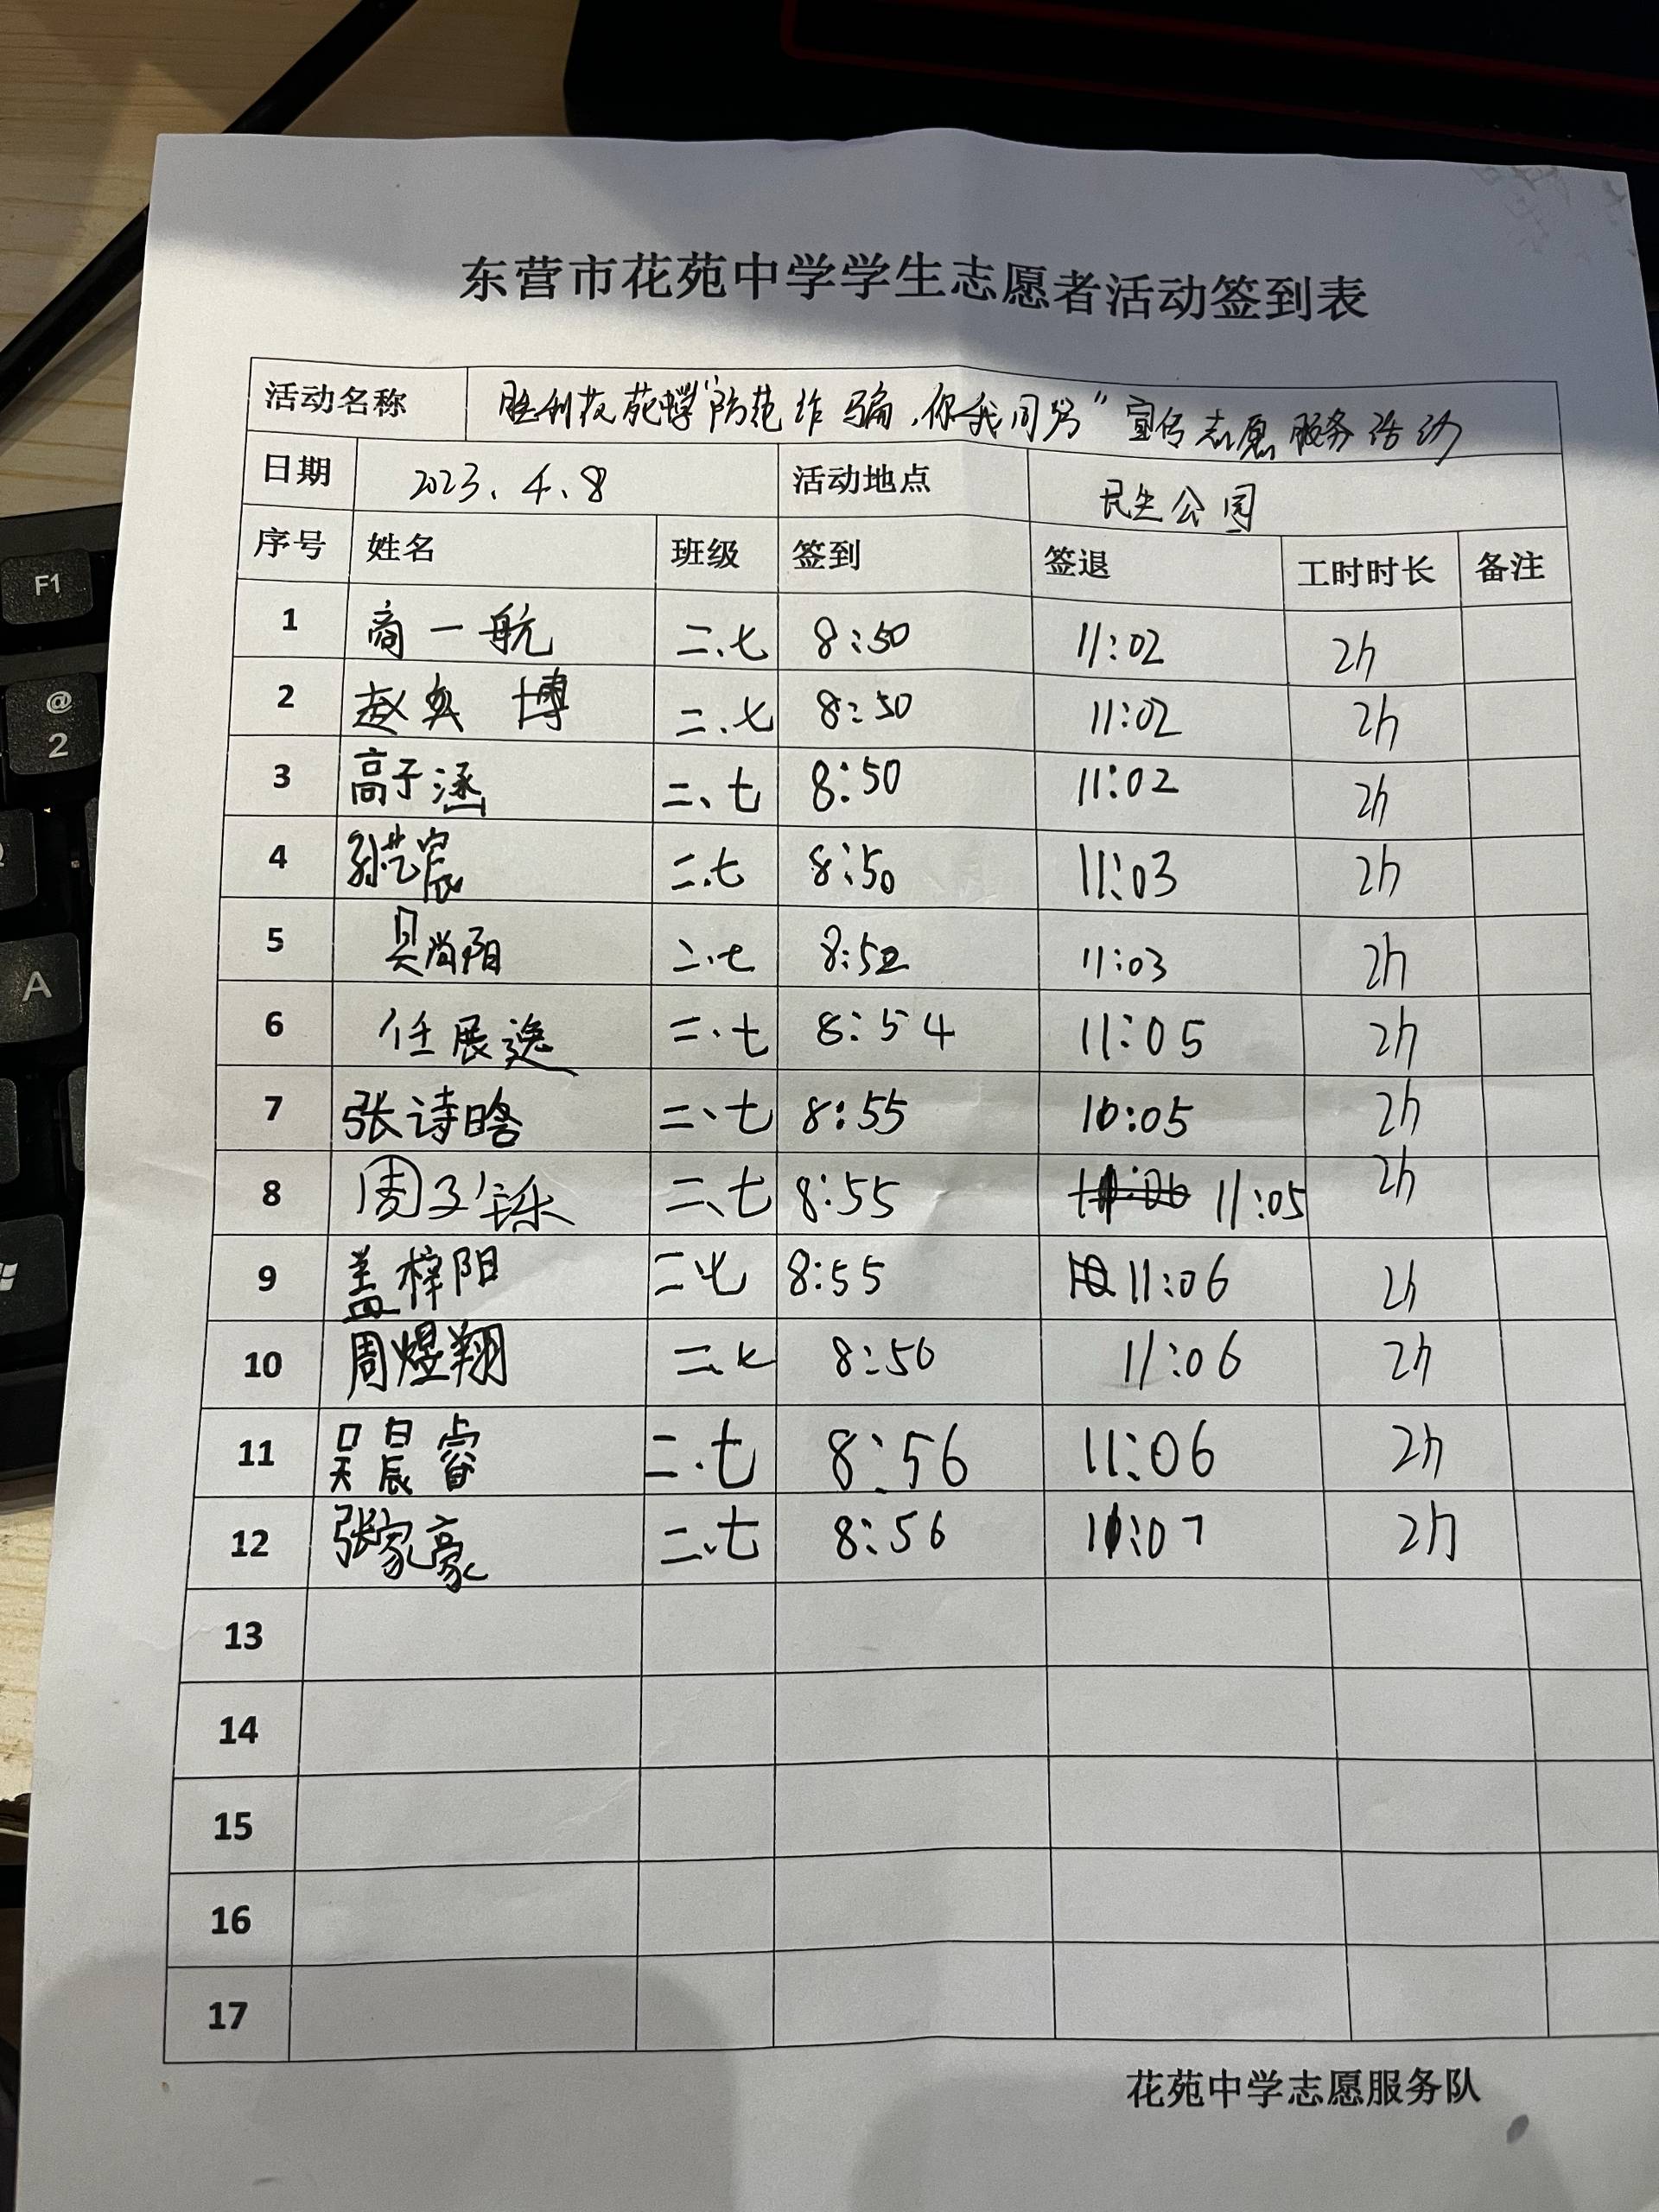 东营市花苑中学学生志愿者活动签到表
活动名称 胜利花苑中学“防范诈骗,你我同行”宣传志愿服务活动
日期 2023、4、8 活动地点 民生公园
序号 姓名 班级 签到 签退 工时时长 备注
1 商一航 二、七 8:50 11:02 2h
2 赵奕博 二、七 8:50 11:02 2h
3 高子涵 二、七 8:50 11:02 2h
4 孙艺宸 二.七 8:50 11:03 2h
5 吴尚阳 二.七 8:52 11:03 2h
6 任展逸 二.七 8:54 11:05 2h
7 张诗晗 二、七 8:55 :05 2h
8 周子铄 二、七 8:55 11:05 2h
9 盖梓阳 二七 8:55 11:06 2h
10 周煜翔 二.七 8:56 11:06 2h
11 吴晨睿 二.七 8:56 11:06 2h
12 张家豪 二、七 8:56 11:07 2h
13
14
15
16
17
花苑中学志愿服务队
F1
@
2
A